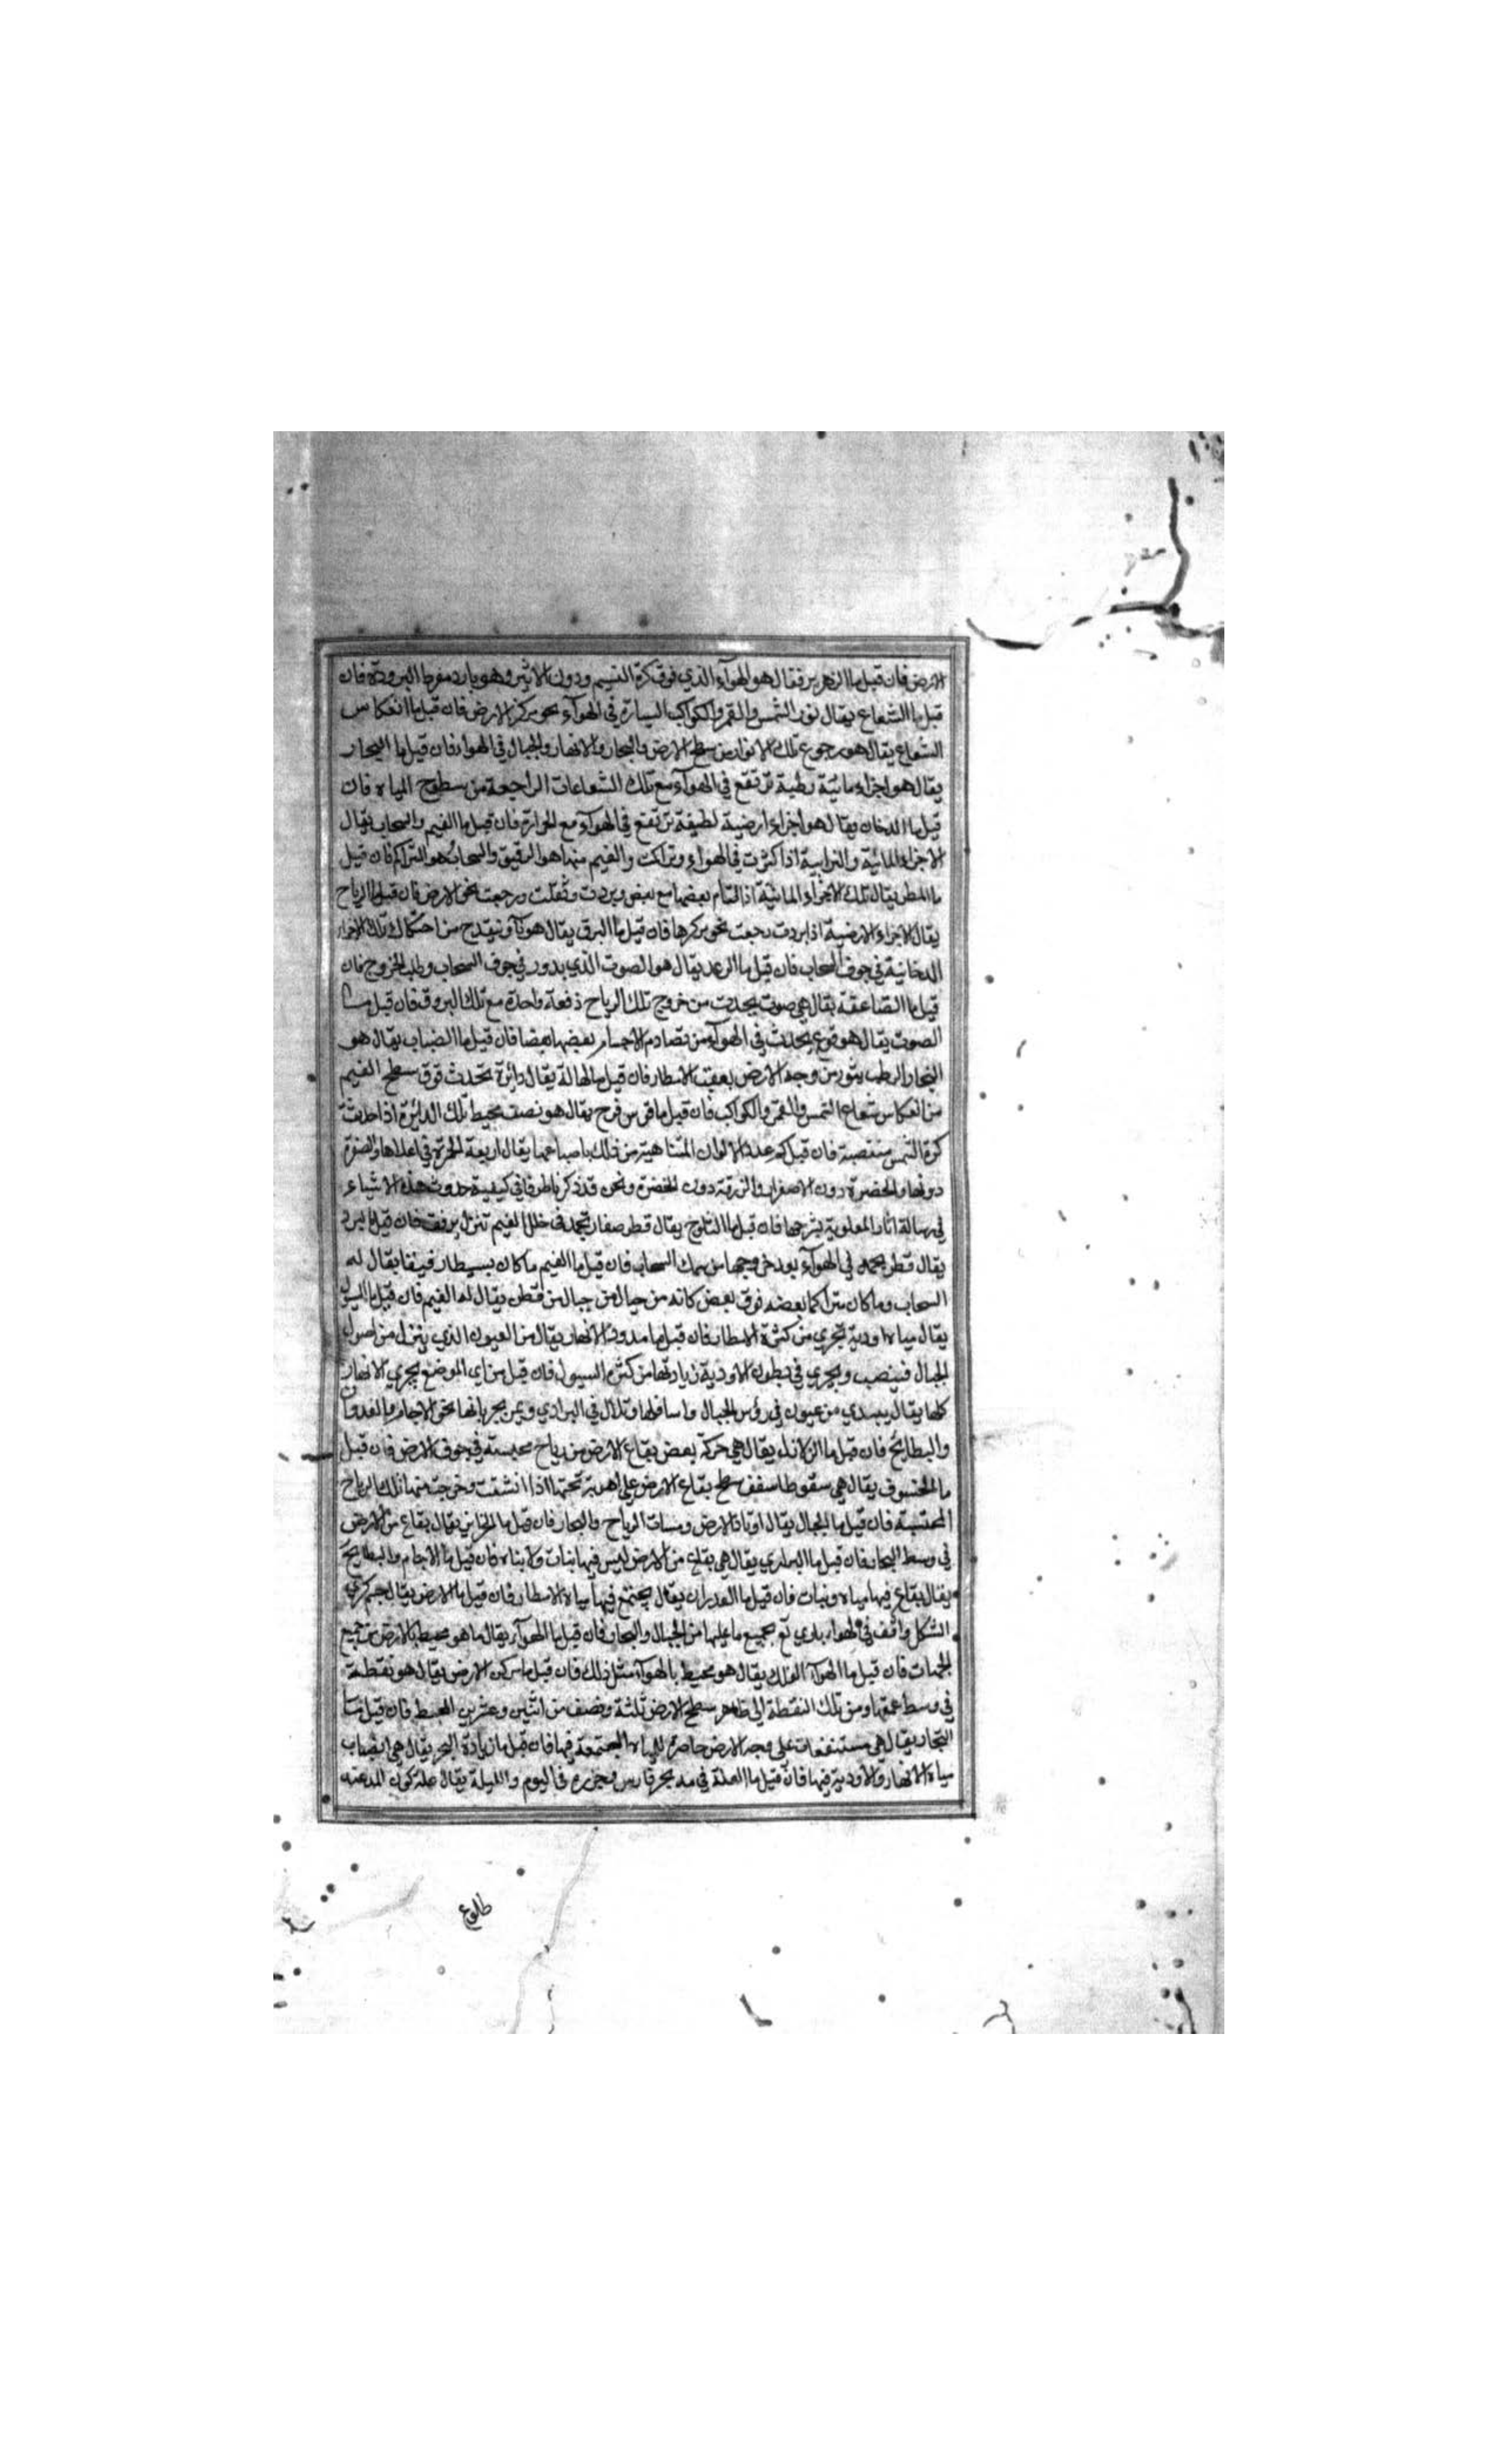 الارض فان قيل ما الزمهرير فقال هو الهوآء الذي فوق كرة النسيم ودون الاثير وهو بارد مفرط البرودة فان
قيل ما الشعاع يقال نور الشمس والقمر والكواكب السيارة في الهوآء نحو مركز الارض فان قيل ما انعكاس
الشعاع يقال هو رجوع تلك الانوار من سطح الارض والبحار والانهار والجبال في الهوا فان قيل ما البخار
يقال هو اجزاء مائية رطبة ترتفع في الهوآء مع تلك الشعاعات الراجعة من سطوح المياه فان
قيل ما الدخان يقال هو اجزاء ارضية لطيفة ترتفع في الهوآء مع الحرارة فان قيل ما الغيم والسحاب يقال
الاجزاء المائية والترابية اذا كثرت في الهواء وتراكت والغيم منها هو الرقيق والسحاب هو المتراكم فان قيل
ما المطر يقال تلك الاجزاء المائية اذا التام بعضها مع بعض وبردت وثقلت ورجعت نحو الارض فان قيل ما الرياح
يقال الاجزاء الارضية اذا بردت رجعت نحو مركزها فان قيل ما البرق يقال هو نار تنقدح من احتكاك تلك الاجزاء
الدخانية في جوف السحاب فان قيل ما الرعد يقال هو الصوت الذي يدور في جوف السحاب وطلب الخروج فان
قيل ما الصاعقة يقال هي صوت يحدث من خروج تلك الرياح دفعة واحدة مع تلك البروق فان قيل ما
الصوت يقال هو قرع يحدث في الهوآء من تصادم الاجسام بعضها بعضا فان قيل ما الضباب يقال هو
البخار الرطب يثور من وجه الارض بعقب الامطار فان قيل ما الهالة يقال دائرة تحدث فوق سطح الغيم
من انعكاس شعاع الشمس والقمر والكواكب فان قيل ما قوس قزح يقال هو نصف محيط تلك الدائرة اذا حدثت
كرة الشمس منتصبة فان قيل كم عدد الالوان يقال اربعة الحمرة في اعلاها والصفرة
دونها والخضرة دون الاصفرار والزرقة دون الخضرة ونحن قد ذكرنا طرفا في كيفية حدوث هذه الاشياء
في رسالة اثار العلوية بشرحها فان قيل ما الثلوج يقال قطر صغار تجمد في خلل الغيم تنزل برفق فان قيل ما البرد
يقال قطر يجمد في الهوآء بعد خروجها من سمك السحاب فان قيل ما الغيم ما كان بسيطا رقيقا يقال له
السحاب وما كان متراكما بعضه فوق بعض كانه من جبال من جبال من قطن يقال له الغيم فان قيل ما السيول
يقال مياه اودية تجري من كثرة الامطار فان قيل ما مدود الانهار يقال من العيون الذي ينزل من اصول
الجبال فينصب ويجري في بطون الاودية زيادتها من كثرة السيول فان قيل من اي الموضع يجري الانهار
كلها يقال يبتدي من عيون في رؤس الجبال واسافلها وتلال في البراري ويمر بجريانها نحو الاجام والغدران
والبطايح فان قيل ما الزلازل يقال هي حركة بعض بقاع الارض من رياح محبسة في جوف الارض فان قيل
ما الخسوف يقال هي سقوط سقف سطح بقاع الارض على تحتها اذا انشقت وخرجت منها تلك الرياح
المحتبسة فان قيل ما الجبال يقال اوتاد الارض ومسنات الرياح والبحار فان قيل ما الجزاير يقال بقاع من الارض
في وسط البحار فان قيل ما البراري يقال هي بقاع من الارض ليس فيها نبات ولا بناء فان قيل ما الاجام والبطايح
يقال بقاع فيها مياه ونبات فان قيل ما الغدران يقال يجتمع فيها مياه الامطار فان قيل ما الارض يقال جسم كري
الشكل واقف في الهواء بجميع ما عليها من الجبال والبحار فان قيل ما الهوآء يقال ما هو محيط بالارض من جميع
الجهات فان قيل ما الفلك يقال هو محيط بالهوآء مثل ذلك فان قيل ما مركز الارض يقال هو نقطة
في وسط عمقها ومن تلك النقطة الى ظاهر سطح الارض ثلثة ونصف من اثنين وعشرين المحيط فان قيل ما
البحار يقال هي مستنقعات على وجه الارض حاصرة للمياه المجتمعة فيها فان قيل ما زيادة البحر يقال هي انصباب
مياه الانهار والاودية فيها فان قيل ما العلة في مد بحر فارس وجزره في اليوم والليلة يقال علة كون المد عند
طلوع